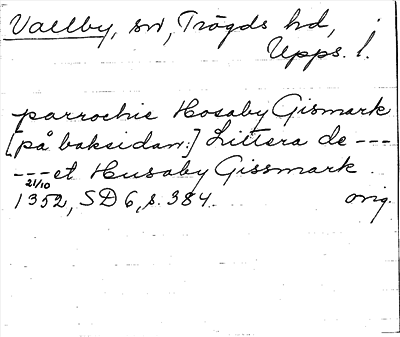 Vallby, sn, Trögds hd,
Upps. l.
parrochie Hosaby Gismark
[på baksidan:] Littera de ---
--- et Husaby Gissmark
21/10
1352, SD 6, s. 384. orig.